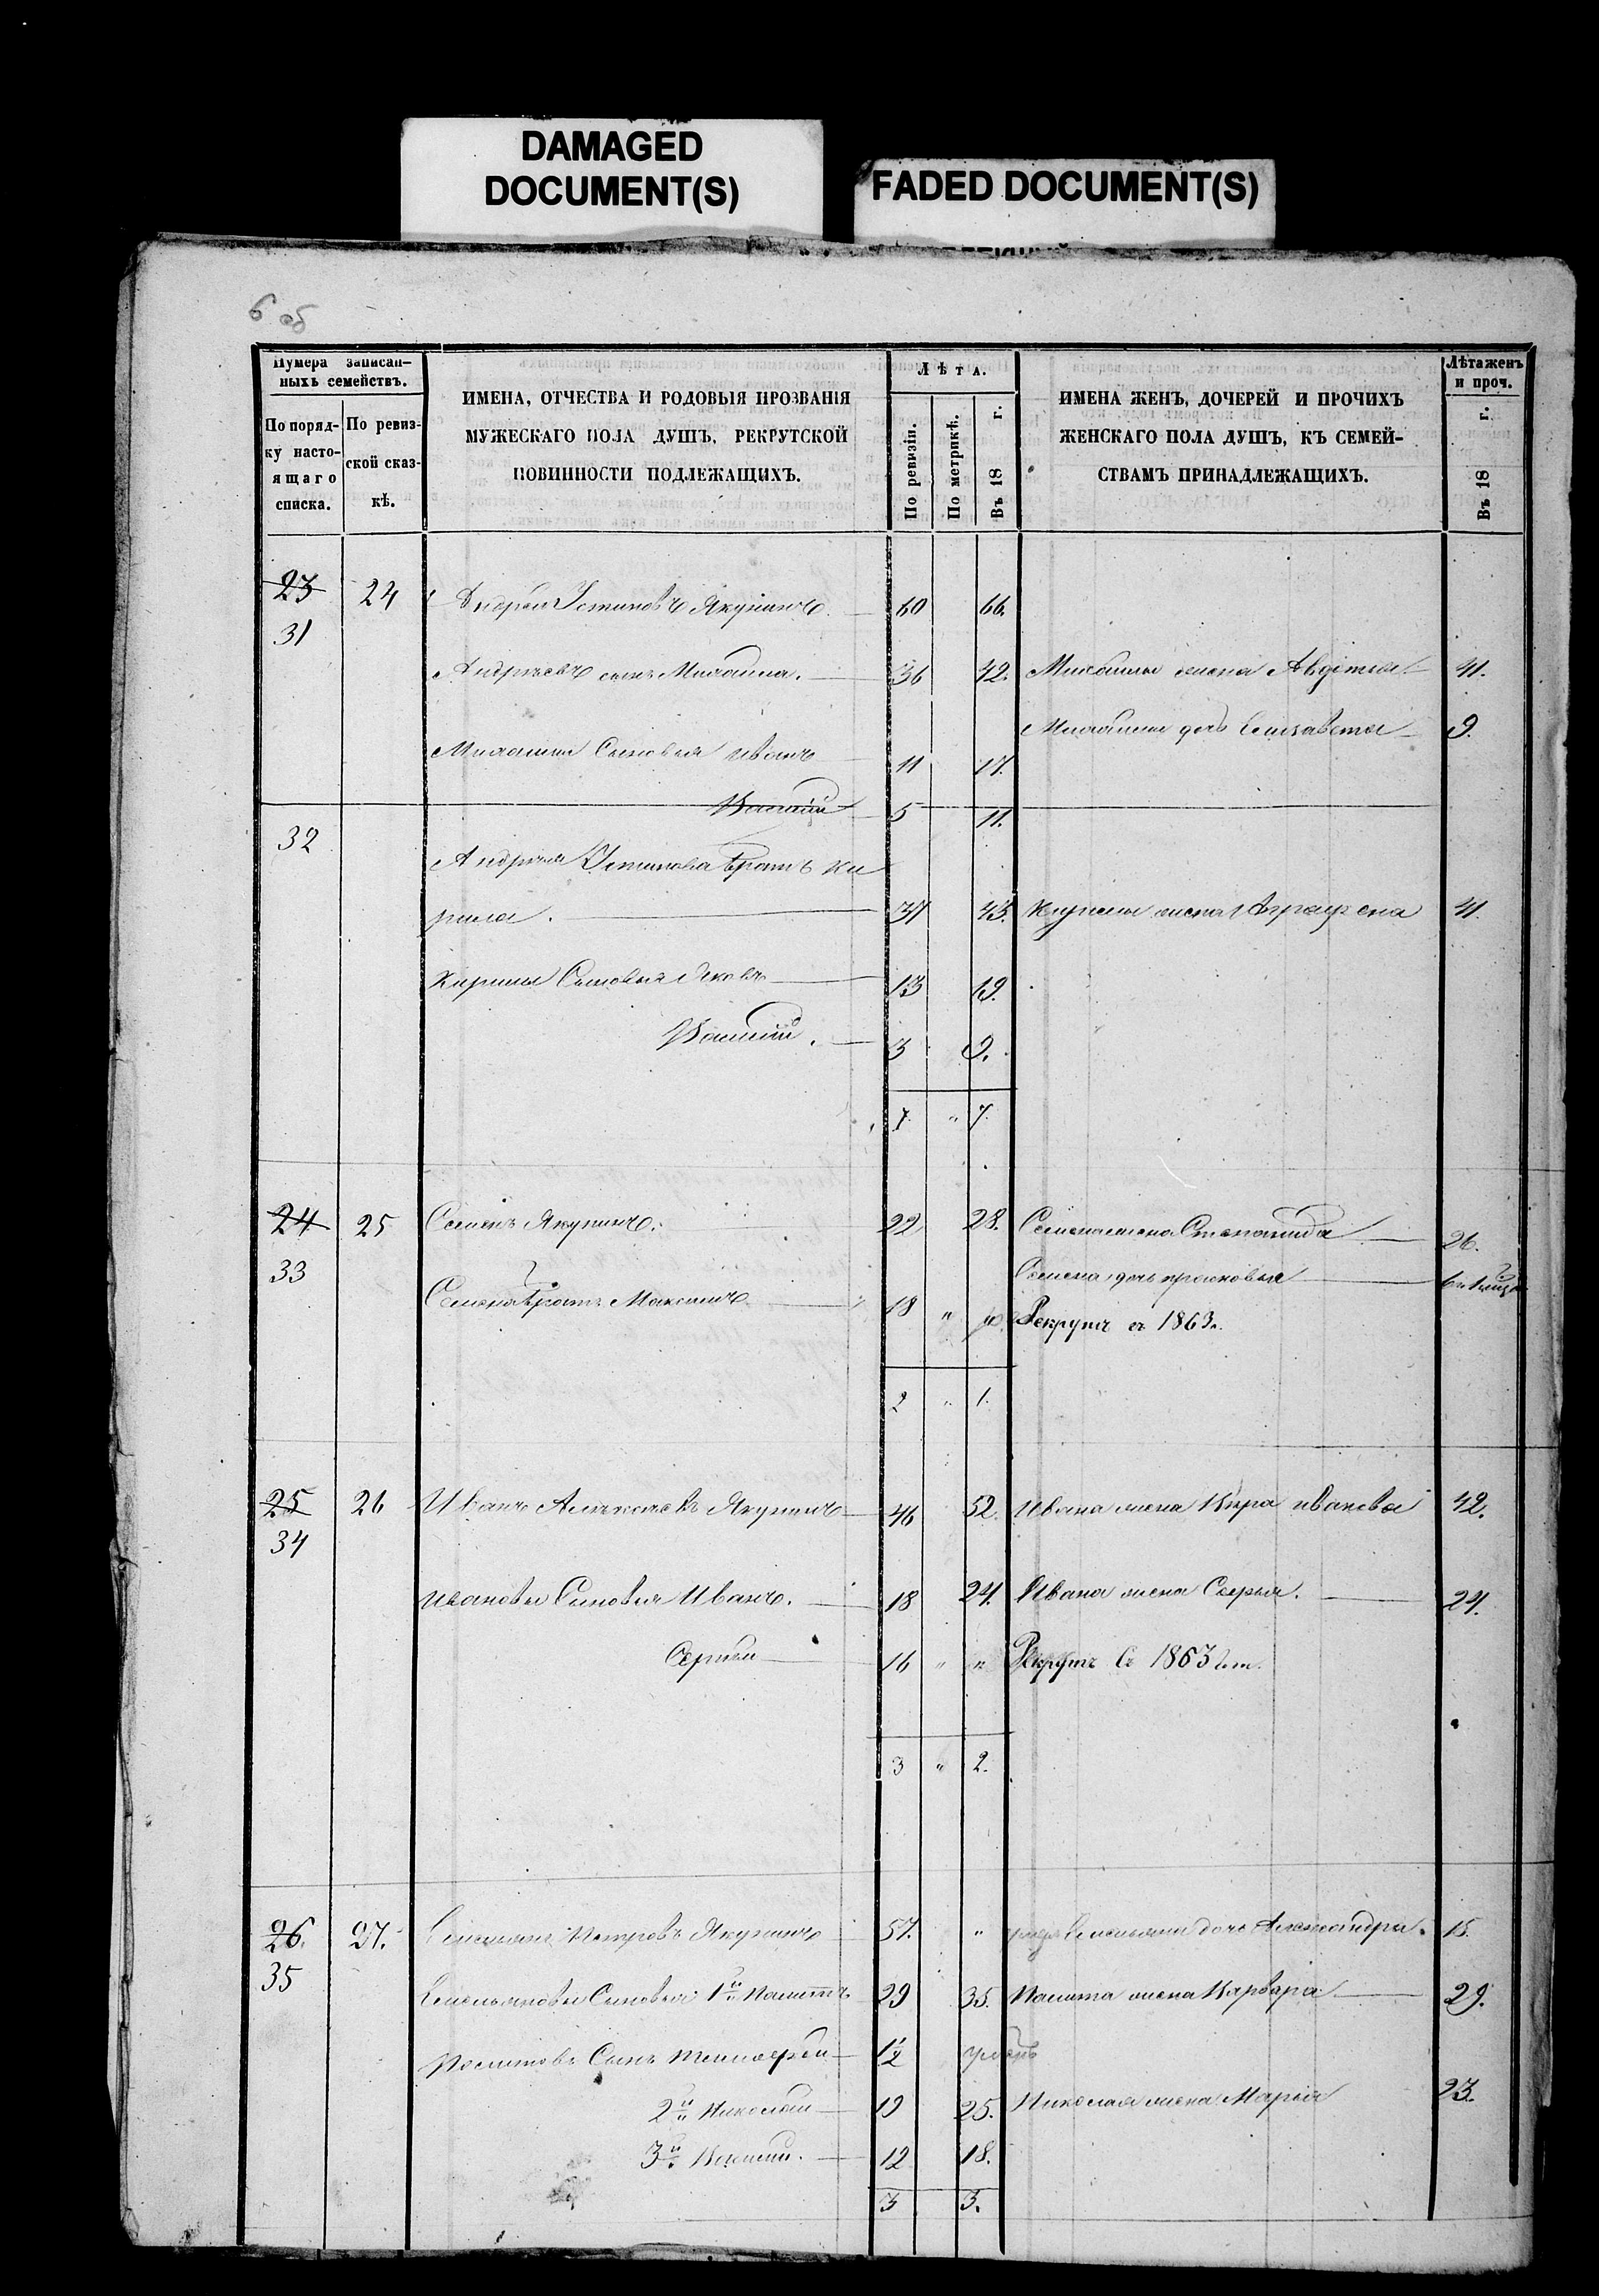 DAMAGED
DOCUMENT(S)
FADED DOCUMENT(S)
6 об
Нумера записан-
ныхъ семействъ.
По поряд-
ку насто-
ящаго
списка.
По ревиз-
ской сказ-
кѣ.
ИМЕНА, ОТЧЕСТВА И РОДОВЫЯ ПРОЗВАНІЯ
МУЖЕСКАГО ПОЛА ДУШЪ, РЕКРУТСКОЙ
ПОВИННОСТИ ПОДЛЕЖАЩИХЪ.
Лѣта.
По ревизіи.
По метрикѣ.
Въ 18 г.
ИМЕНА ЖЕНЪ, ДОЧЕРЕЙ И ПРОЧИХЪ
ЖЕНСКАГО ПОЛА ДУШЪ, КЪ СЕМЕЙ-
СТВАМЪ ПРИНАДЛЕЖАЩИХЪ.
Лѣта женъ
и проч.
Въ 18 г.
23 24 Андрей Устиновъ Якунинъ 60 66.
31
Андреевъ сынъ Михаила. 36 42. Михаилы жена Авдотья 41.
Михаилы дочь Елизавета 9.
Михаилы Сыновья Иванъ 11 17.
Василій 5 11.
32
Андрея Устинова братъ Ки
рила. 37 43. Кирилы жена Аграфена 41.
Кирилы Сыновья Яковъ 13 19.
Василій. 3 9.
7 " 7.
24 25 Семенъ Якунинъ. 22 28. Семена жена Степанида 26.
33
Семена дочь
Семена братъ Максимъ 18 " " Рекрутъ съ 1863 г.
2 " 1.
25 26 Иванъ Алексеевъ Якунинъ 46 52. Ивана жена Иванова 42.
34
Ивановы Сыновья Иванъ. 18 24. Ивана жена 24.
Сергей 16 " " Рекрутъ съ 1863
3 " 2.
26. 27. Емельянъ Петровъ Якунинъ 57. " Емельяна дочь Александра. 15.
35
Емельяновы Сыновья 1й 29 35. жена Варвара 29.
Сынъ 1/2
2й Николай 19 25. Николая жена Марья 23.
3й Василій. 12 18.
3 3.